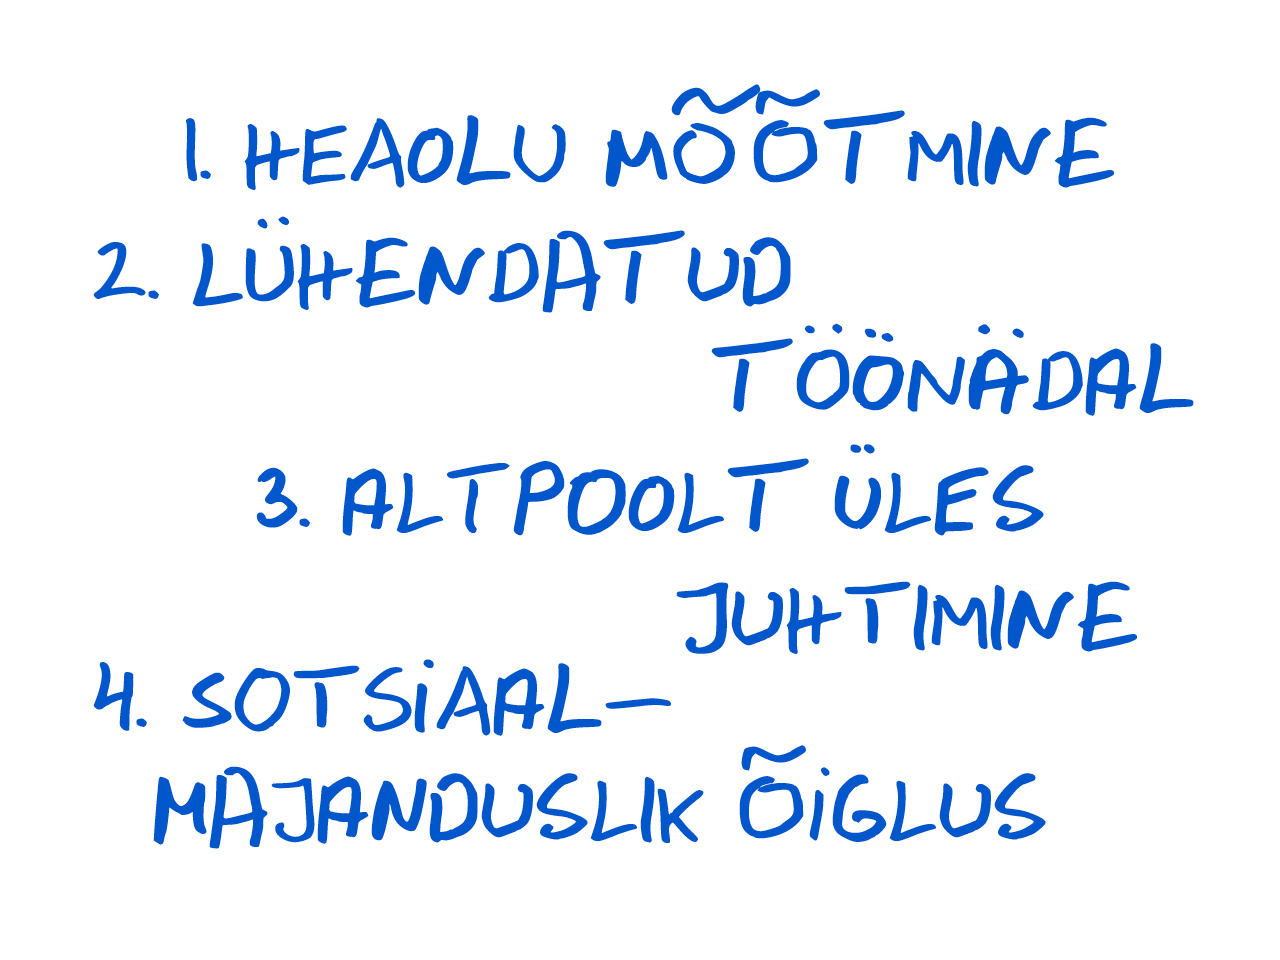 1. HEAOLU MÕÕTMINE
2. LÜHENDATUD
TÖÖNÄDAL
3. ALTPOOLT ÜLES
JUHTIMINE
4. SOTSIAAL-
MAJANDUSLIK ÕIGLUS